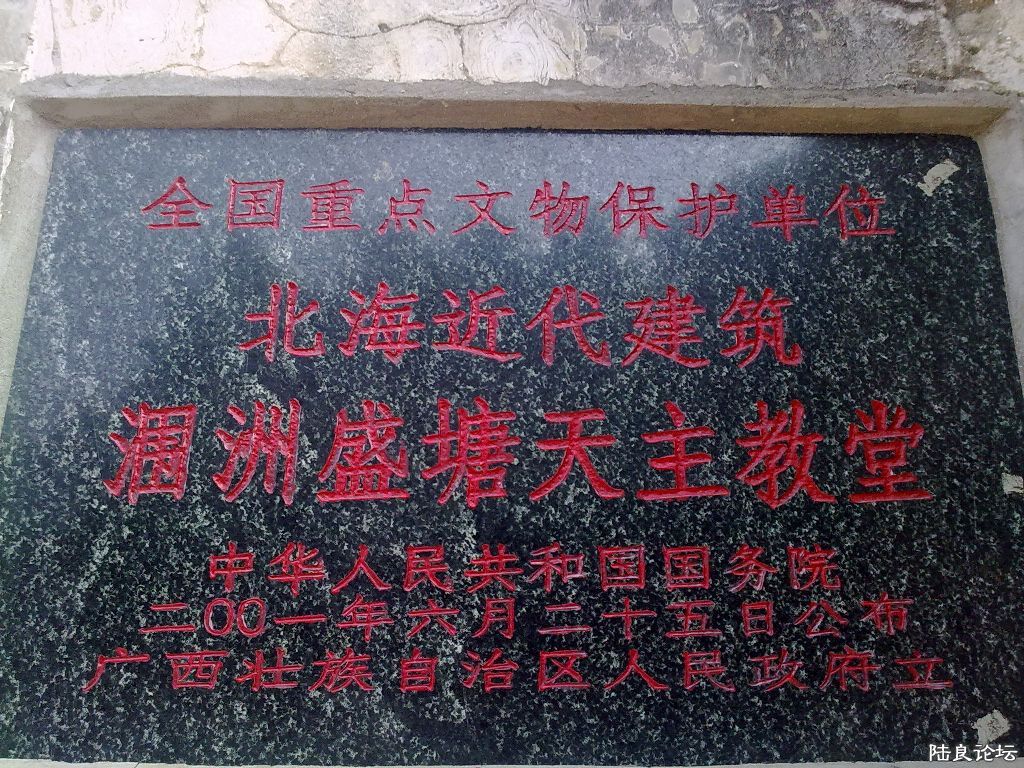 全国重点文物保护单位
北海近代建筑
涠洲盛塘天主教堂
中华人民共和国国务院
二〇〇一年六月二十五日公布
广西壮族自治区人民政府立
陆良论坛